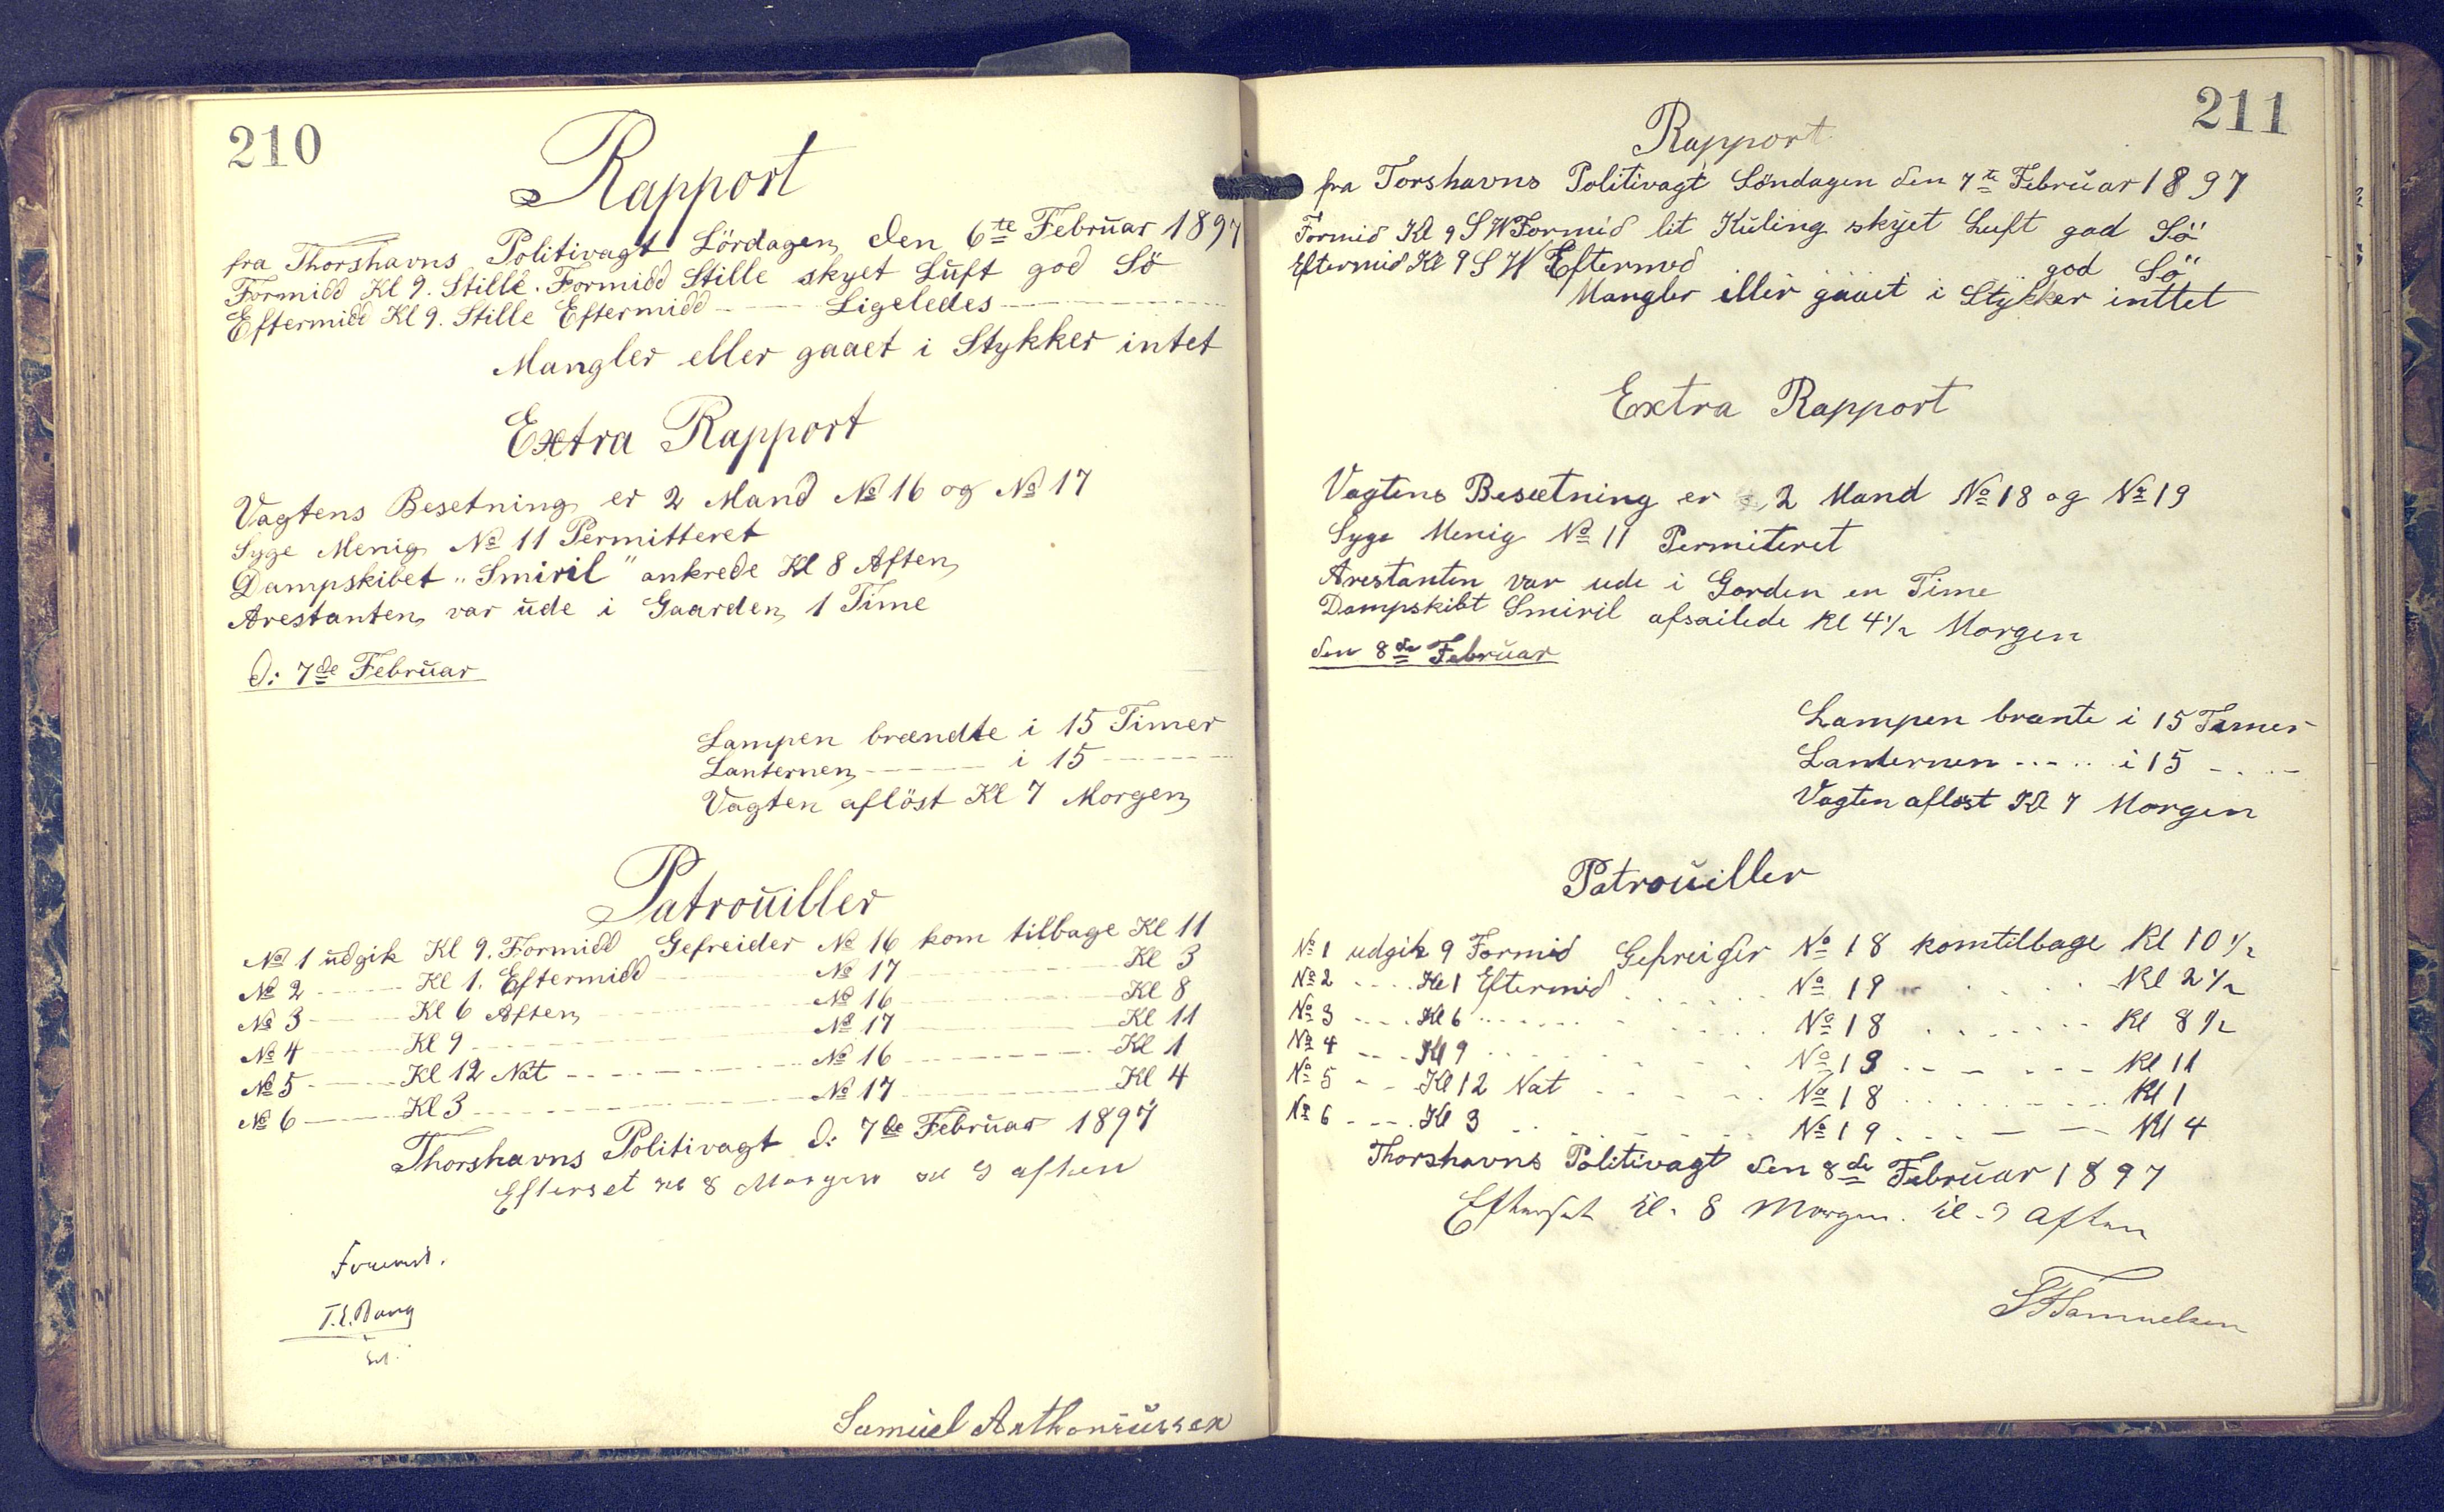 210
Rapport
fra Thorshavns Politivagt Lördagen den 6te Februar 1897
Formidd Kl 9. Stille. Formidd Stille skyet Luft god Sö
Eftermidd Kl 9. Stille Eftermidd - - - Ligeledes - - -
Mangler eller gaaet i Stykker intet
Extra Rapport
Vagtens Besetning er 2 Mand No 16 og No 17
Syge Menig No 11 Permitteret
Dampskibet "Smiril" ankrede Kl 8 Aften
Arestanten var ude i Gaarden 1 Time
d: 7de Februar
Lampen brændte i 15 Timer
Lanternen - - - i 15 - - -
Vagten aflöst Kl 7 Morgen
Patrouiller
No 1 udgik Kl 9. Formidd Gefreider No 16 kom tilbage Kl 11
No 2 - - - Kl 1. Eftermidd - - - No 17 - - - Kl 3
No 3 - - - Kl 6 Aften - - - No 16 - - - Kl 8
No 4 - - - Kl 9 - - - No 17 - - - Kl 11
No 5 - - - Kl 12 Nat - - - No 16 - - - Kl 1
No 6 - - - Kl 3 - - - No 17 - - - Kl 4
Thorshavns Politivagt d: 7de Februar 1897
Efterset Kl 8 Morgen Kl 9 aften
T.E. Bang
Samuel Anthoniussen
211
Rapport
fra Torshavns Politivagt Söndagen den 7te Februar 1897
Formid Kl 9 SW Formid lit Kuling skyet Luft god Sö
Eftermid Kl 9 SW Eftermed god Sö
Mangler eller gaaet i Stykker inttet
Extra Rapport
Vagtens Besætning er 2 Mand No 18 og No 19
Syge Menig No 11 Permiteret
Arestanten var ude i Gorden en Time
Dampskibt Smiril afsailede Kl 4 1/2 Morgen
den 8de Februar
Lampen brænte i 15 Timer
Lanternen - - - i 15 - - -
Vagten aflöst Kl 7 Morgen
Patrouiller
No 1 udgik 9 Formid Gefreider No 18 komtilbage Kl 10 1/2
No 2 - - - Kl 1 Eftermid - - - No 19 - - - Kl 2 1/2
No 3 - - - Kl 6 - - - No 18 - - - Kl 8 1/2
No 4 - - - Kl 9 - - - No 19 - - - Kl 11
No 5 - - - Kl 12 Nat - - - No 18 - - - Kl 1
No 6 - - - Kl 3 - - - No 19 - - - Kl 4
Thorshavns Politivagt den 8de Februar 1897
Efterset Kl. 8 Morgen. Kl. 9 aften
Samuelsen